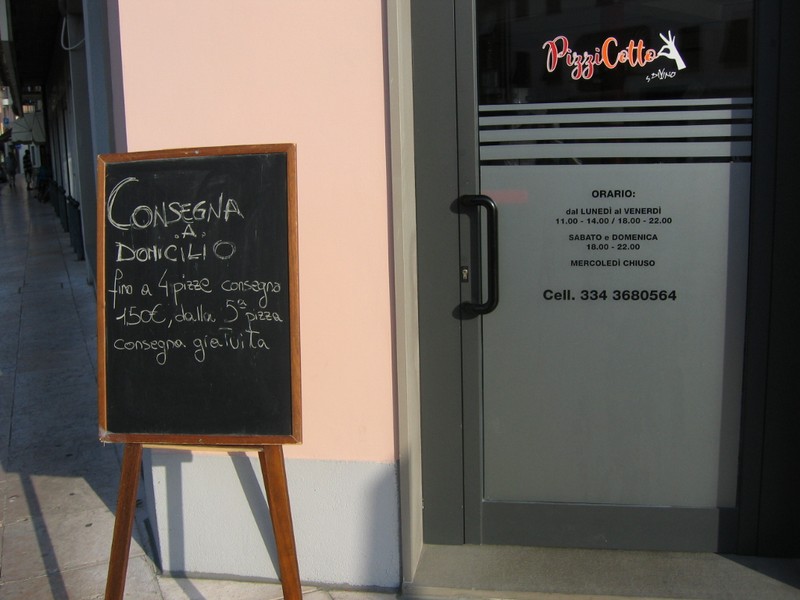 CONSEGNA
A
DOMICILIO
fino a 4 pizze consegna
1.50€, dalla 5ª pizza
consegna gratuita
PizziCotto
ORARIO:
dal LUNEDÌ al VENERDÌ
11.00 - 14.00 / 18.00 - 22.00
SABATO e DOMENICA
18.00 - 22.00
MERCOLEDÌ CHIUSO
Cell. 334 3680564